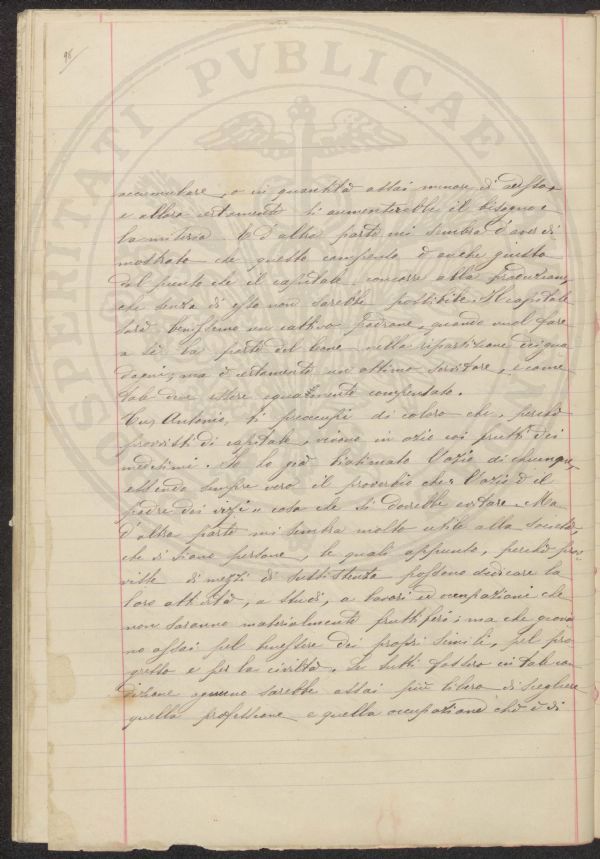 98
OSPEMIATI PVBLICAE
accumulare, o in quantità assai minore di adesso,
e allora certamente si aumenterebbe il bisogno e
la miseria. E d'altra parte mi sembra d'aver di
mostrato che questo compenso è anche giusto
dal punto che il capitale concorre alla produzione,
che senza di esso non sarebbe possibile. Il capitale
sarà benissimo un cattivo padrone, quando vuol fare
a sè la parte del leone nella ripartizione dei gua
dagni; ma è certamente un ottimo servitore, e come
tale deve essere equamente compensato.
Tu, Antonio, ti preoccupi di coloro che, perchè
provvisti di capitale, vivono in ozio coi frutti dei
medesimi. Io ho già biasimato l'ozio di chiunque,
essendo sempre vero il proverbio che l'ozio è il
padre dei vizi e cosa che si dovrebbe evitare. Ma
d'altra parte mi sembra molto utile alla società,
che vi siano persone, le quali appunto, perchè prov
viste di mezzi di sussistenza possono dedicare la
loro attività, a studi, a lavori ed occupazioni che
non saranno materialmente fruttiferi; ma che giova
no assai pel benessere dei propri simili, pel pro
gresso e per la civiltà. Se tutti fossero in tale con
dizione ognuno sarebbe assai più libero di scegliere
quella professione e quella occupazione ch'è di